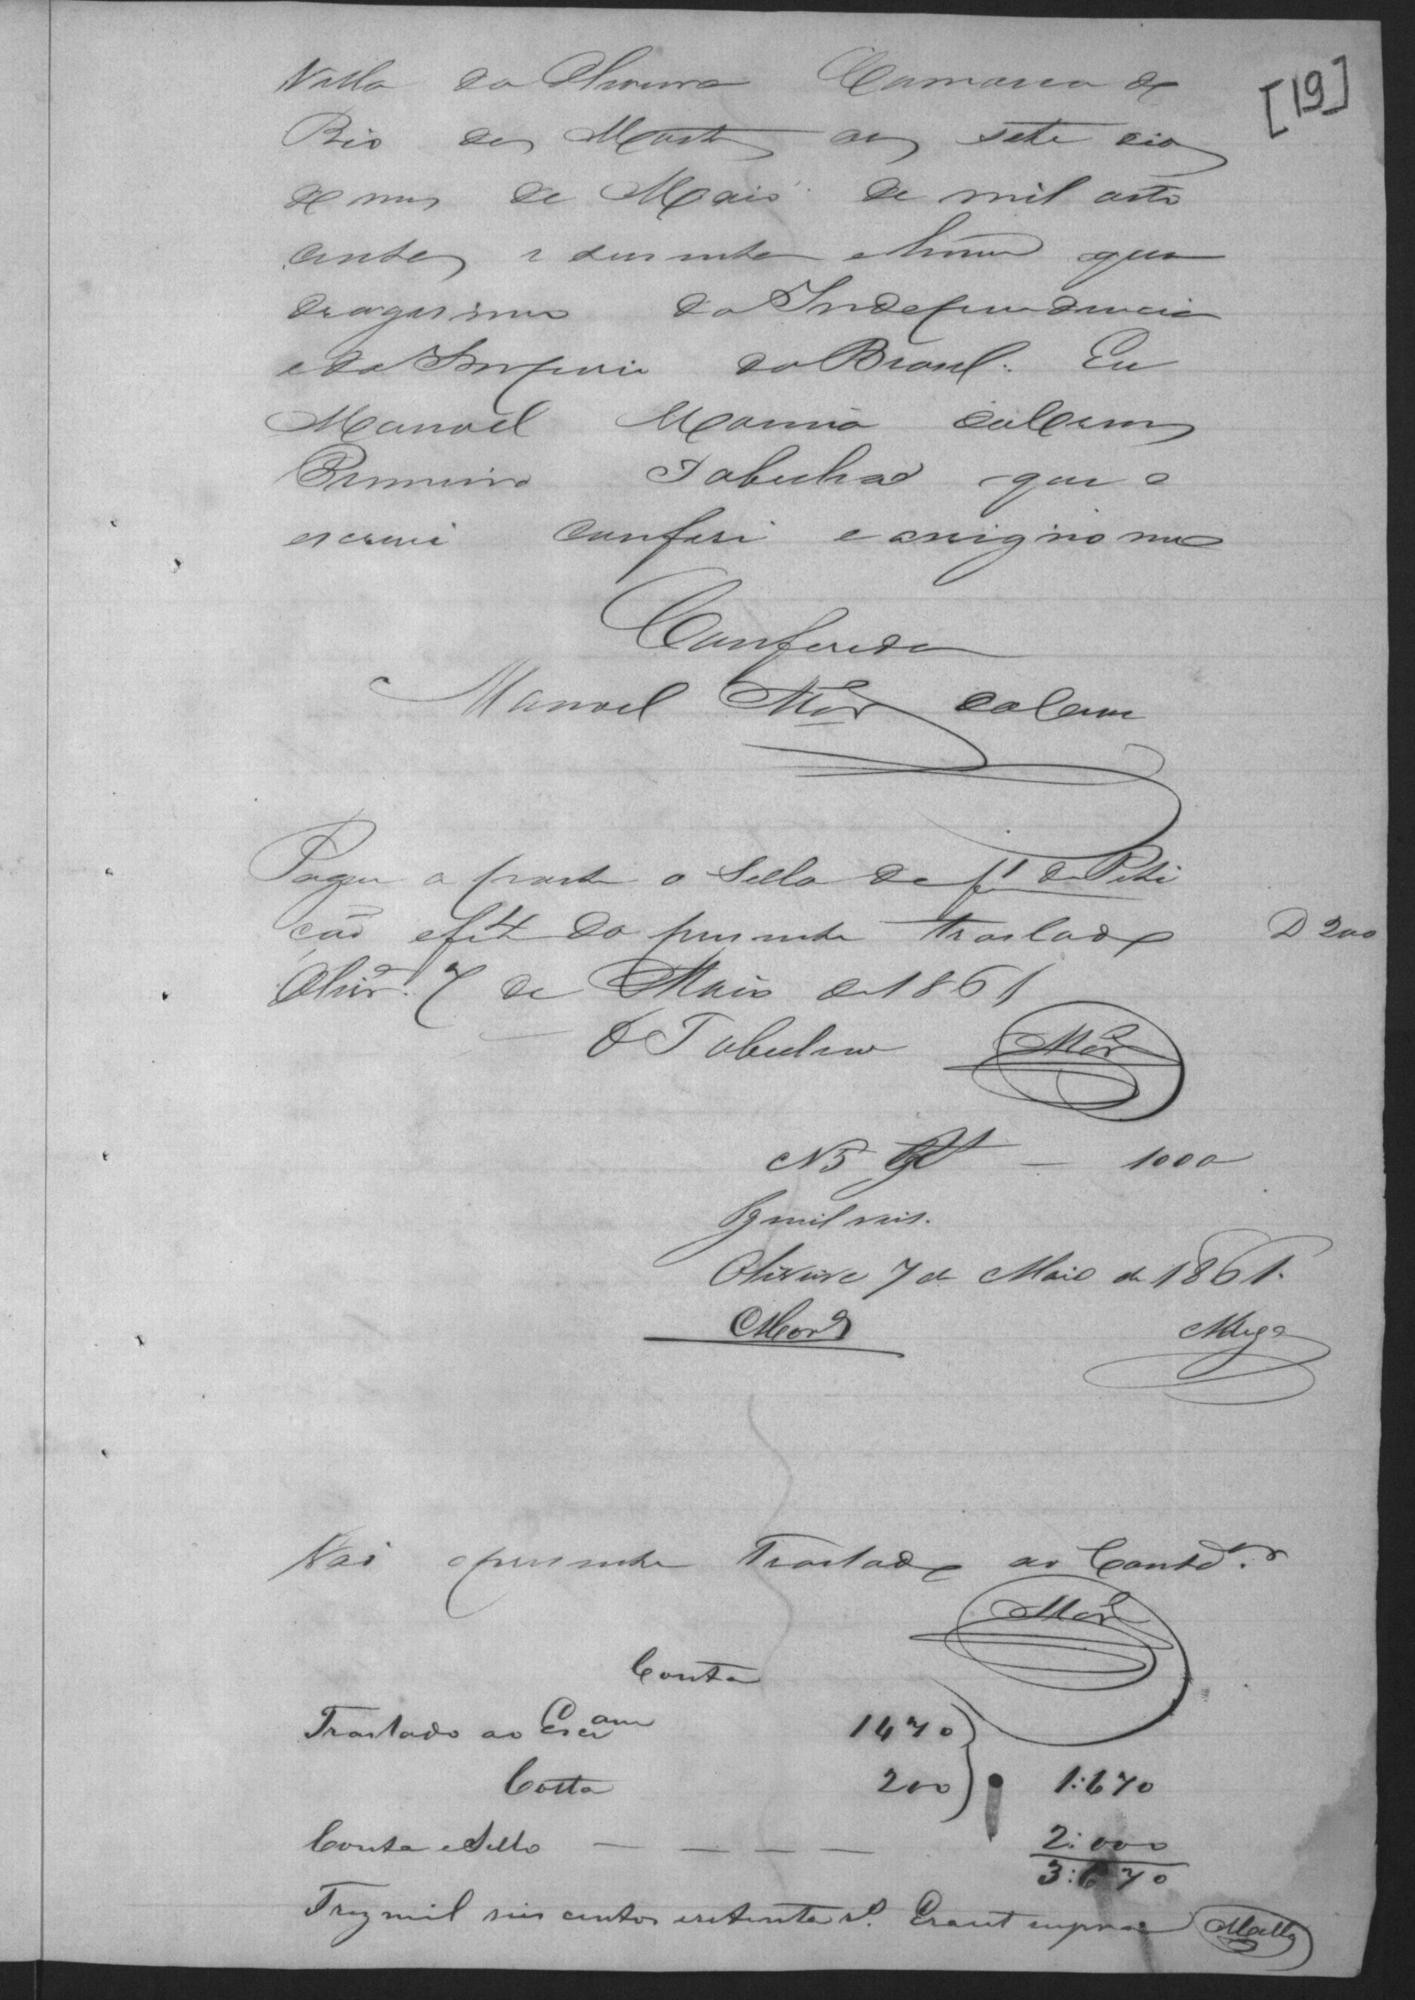 [19]
Villa da Oliveira Camarca do
Rio das Mortes aos sete dias
do mes de Maio de mil oito
centos e sessenta e hum qua
dragesimo da Independencia
e do Imperio do Brasil. Eu
Manoel
Primeiro Tabelião que o
escrevi conferi e assigno me
Conferida
Manoel
Pagou a parte o Sello de f 1 da Peti
ção e f 4 do presente traslado D 200
Olivrª 7 de Maio de 1861
O Tabeliam
N 5 1000
Pg mil reis.
Oliveira 7 de Maio de 1861.
Vai o presente Traslado ao Contdor
Conta
Traslado ao Escram 1470
Cotta 200 1:670
Conta e Sello — — — — 2:000
3:670
Trez mil seis centos e setenta rs.